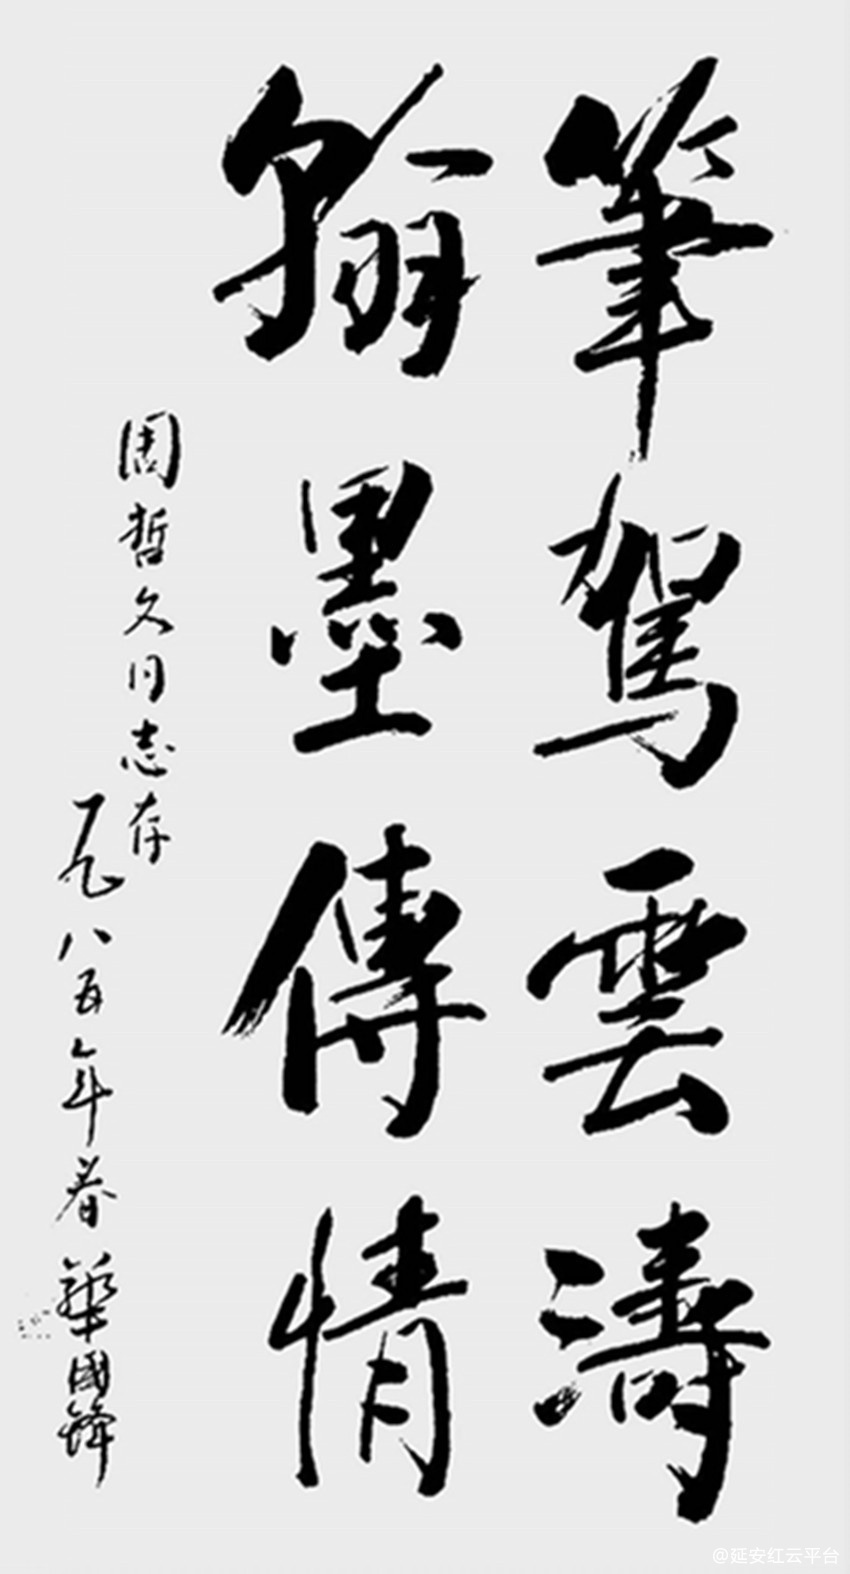 筆駕雲濤
翰墨傳情
周哲文同志存
一九八五年春 華國鋒
@延安红云平台